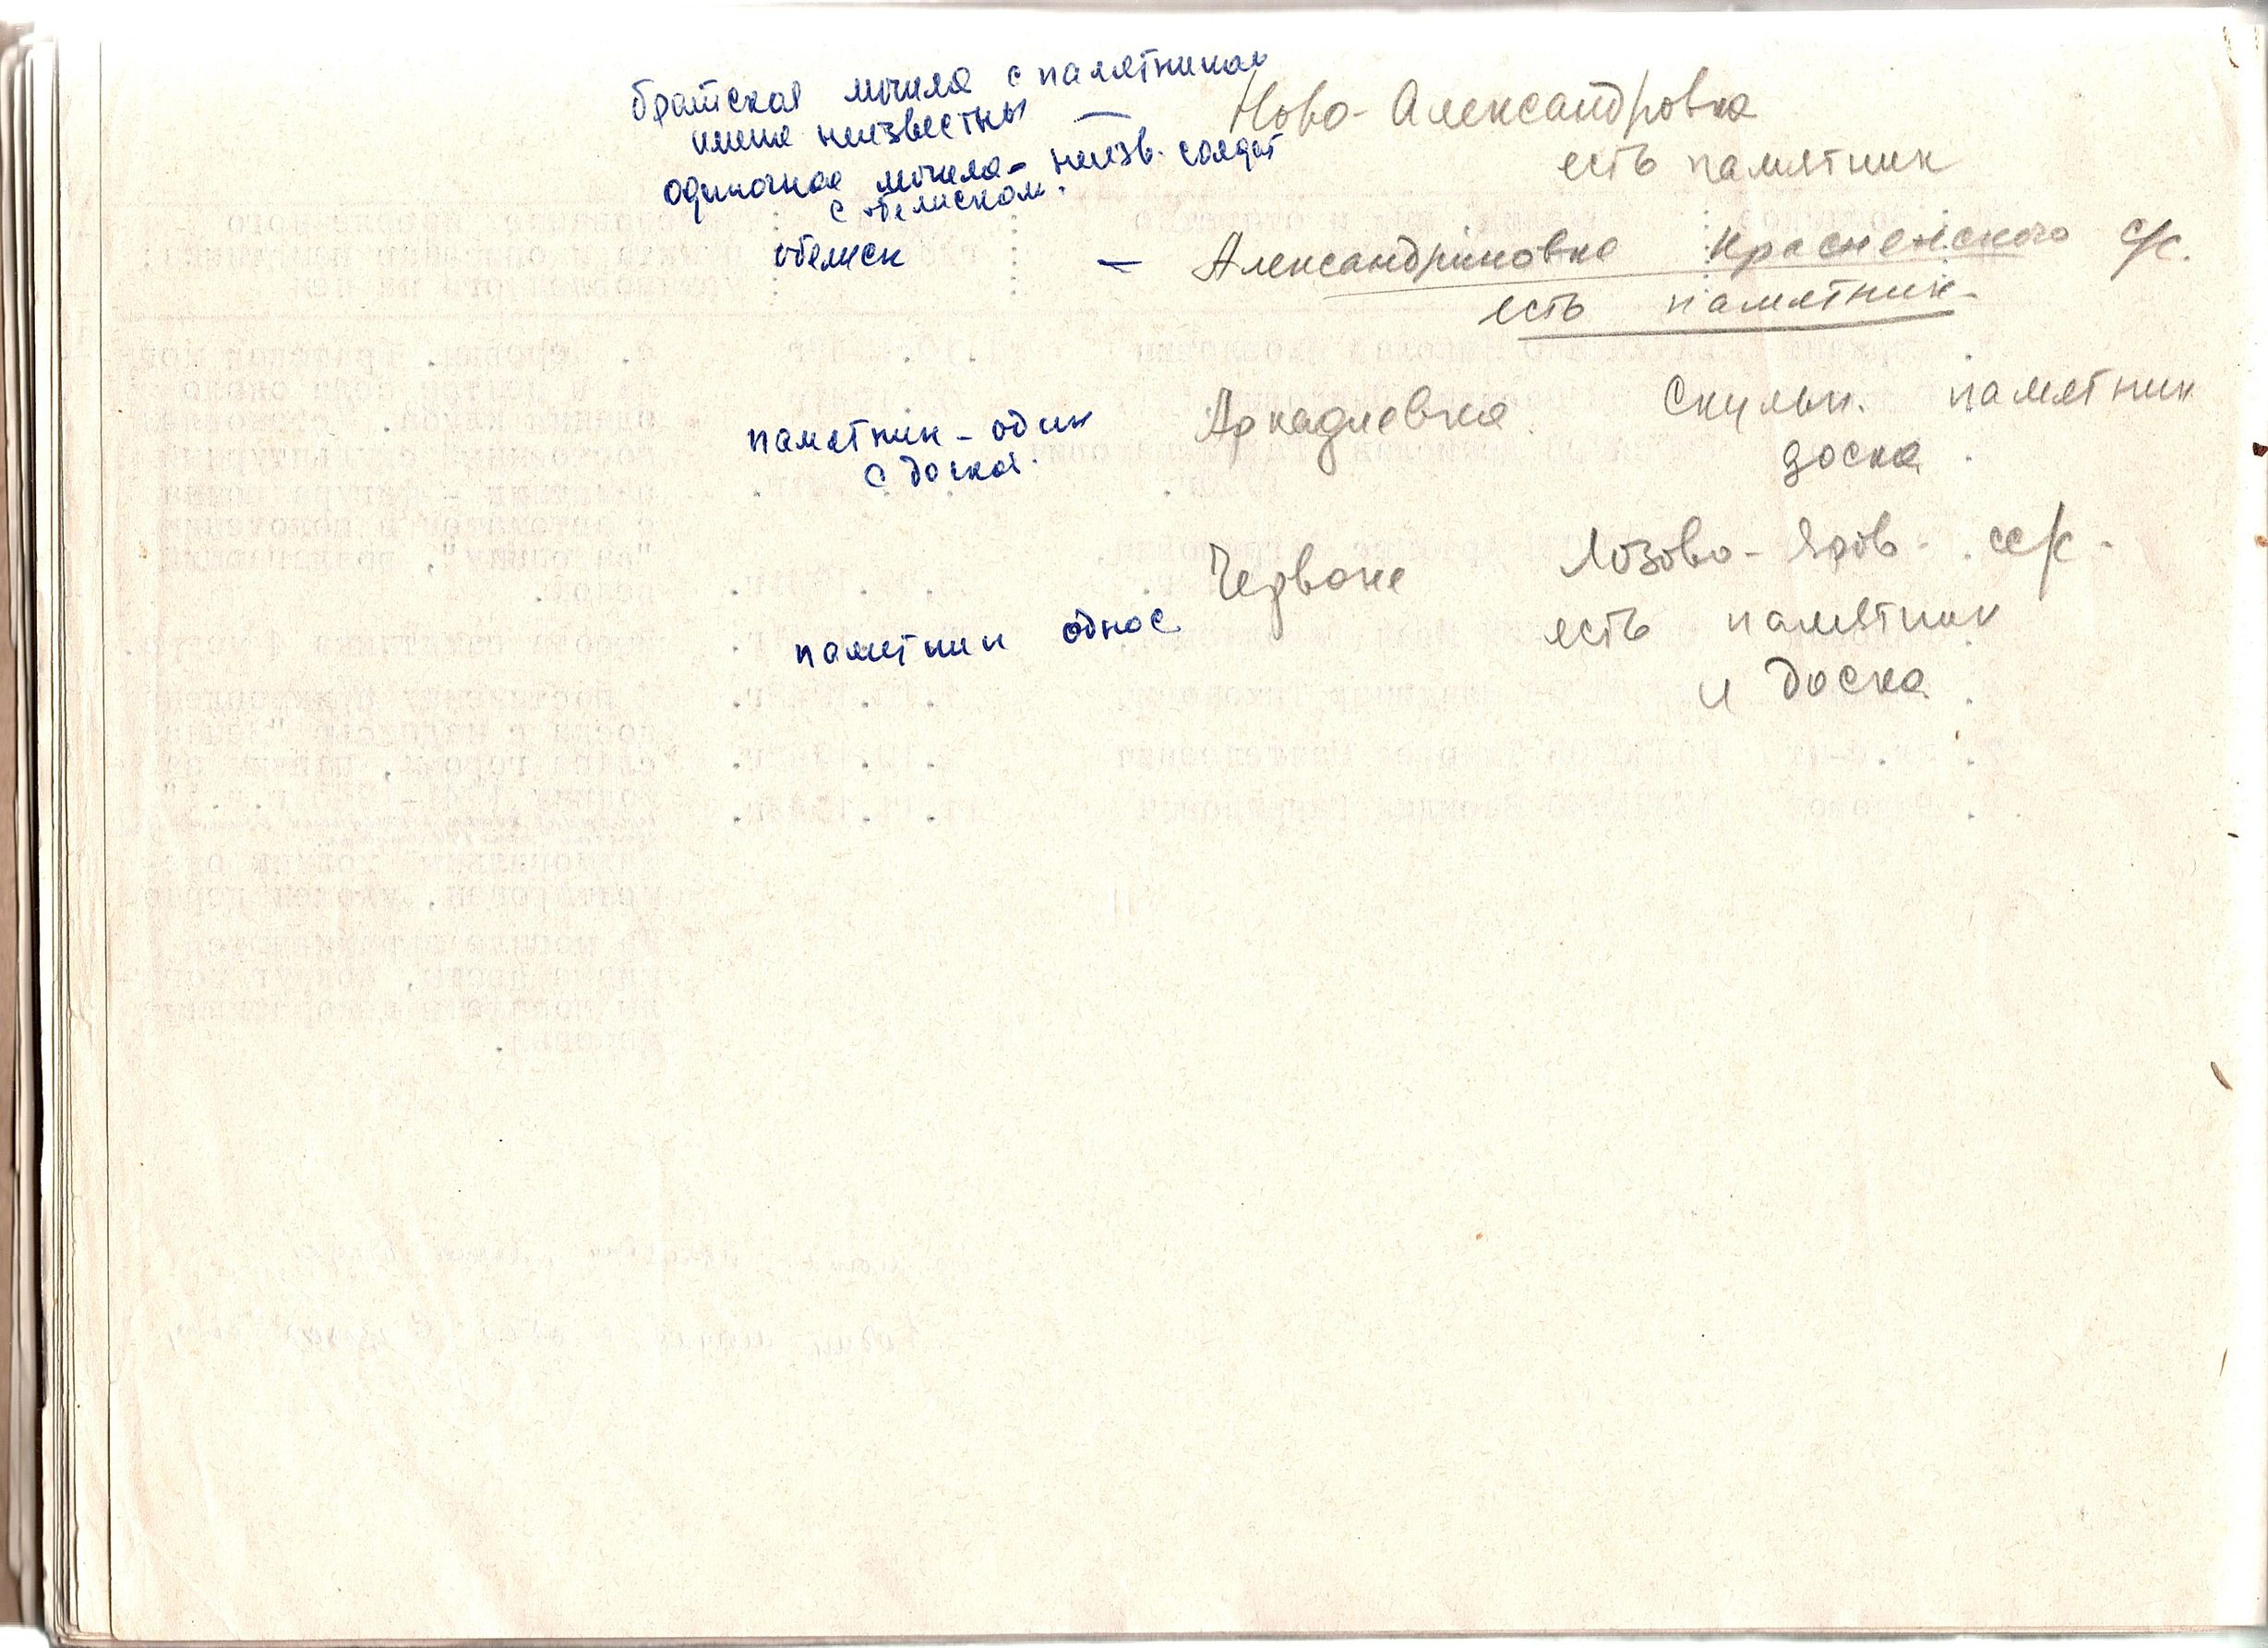 братская могила с памятником
имена неизвестны —
Ново-Александровка
есть памятник
одиночная могила - неизв. солдат
с обелиском.
обелиск — Александриновка Красненского с/с.
есть памятник.
памятник - один
с доской.
Аркадиевка. Скульп. памятник
доска.
Червоне Лозово-Яров. с/с.
есть памятник
и доска
памятник один с